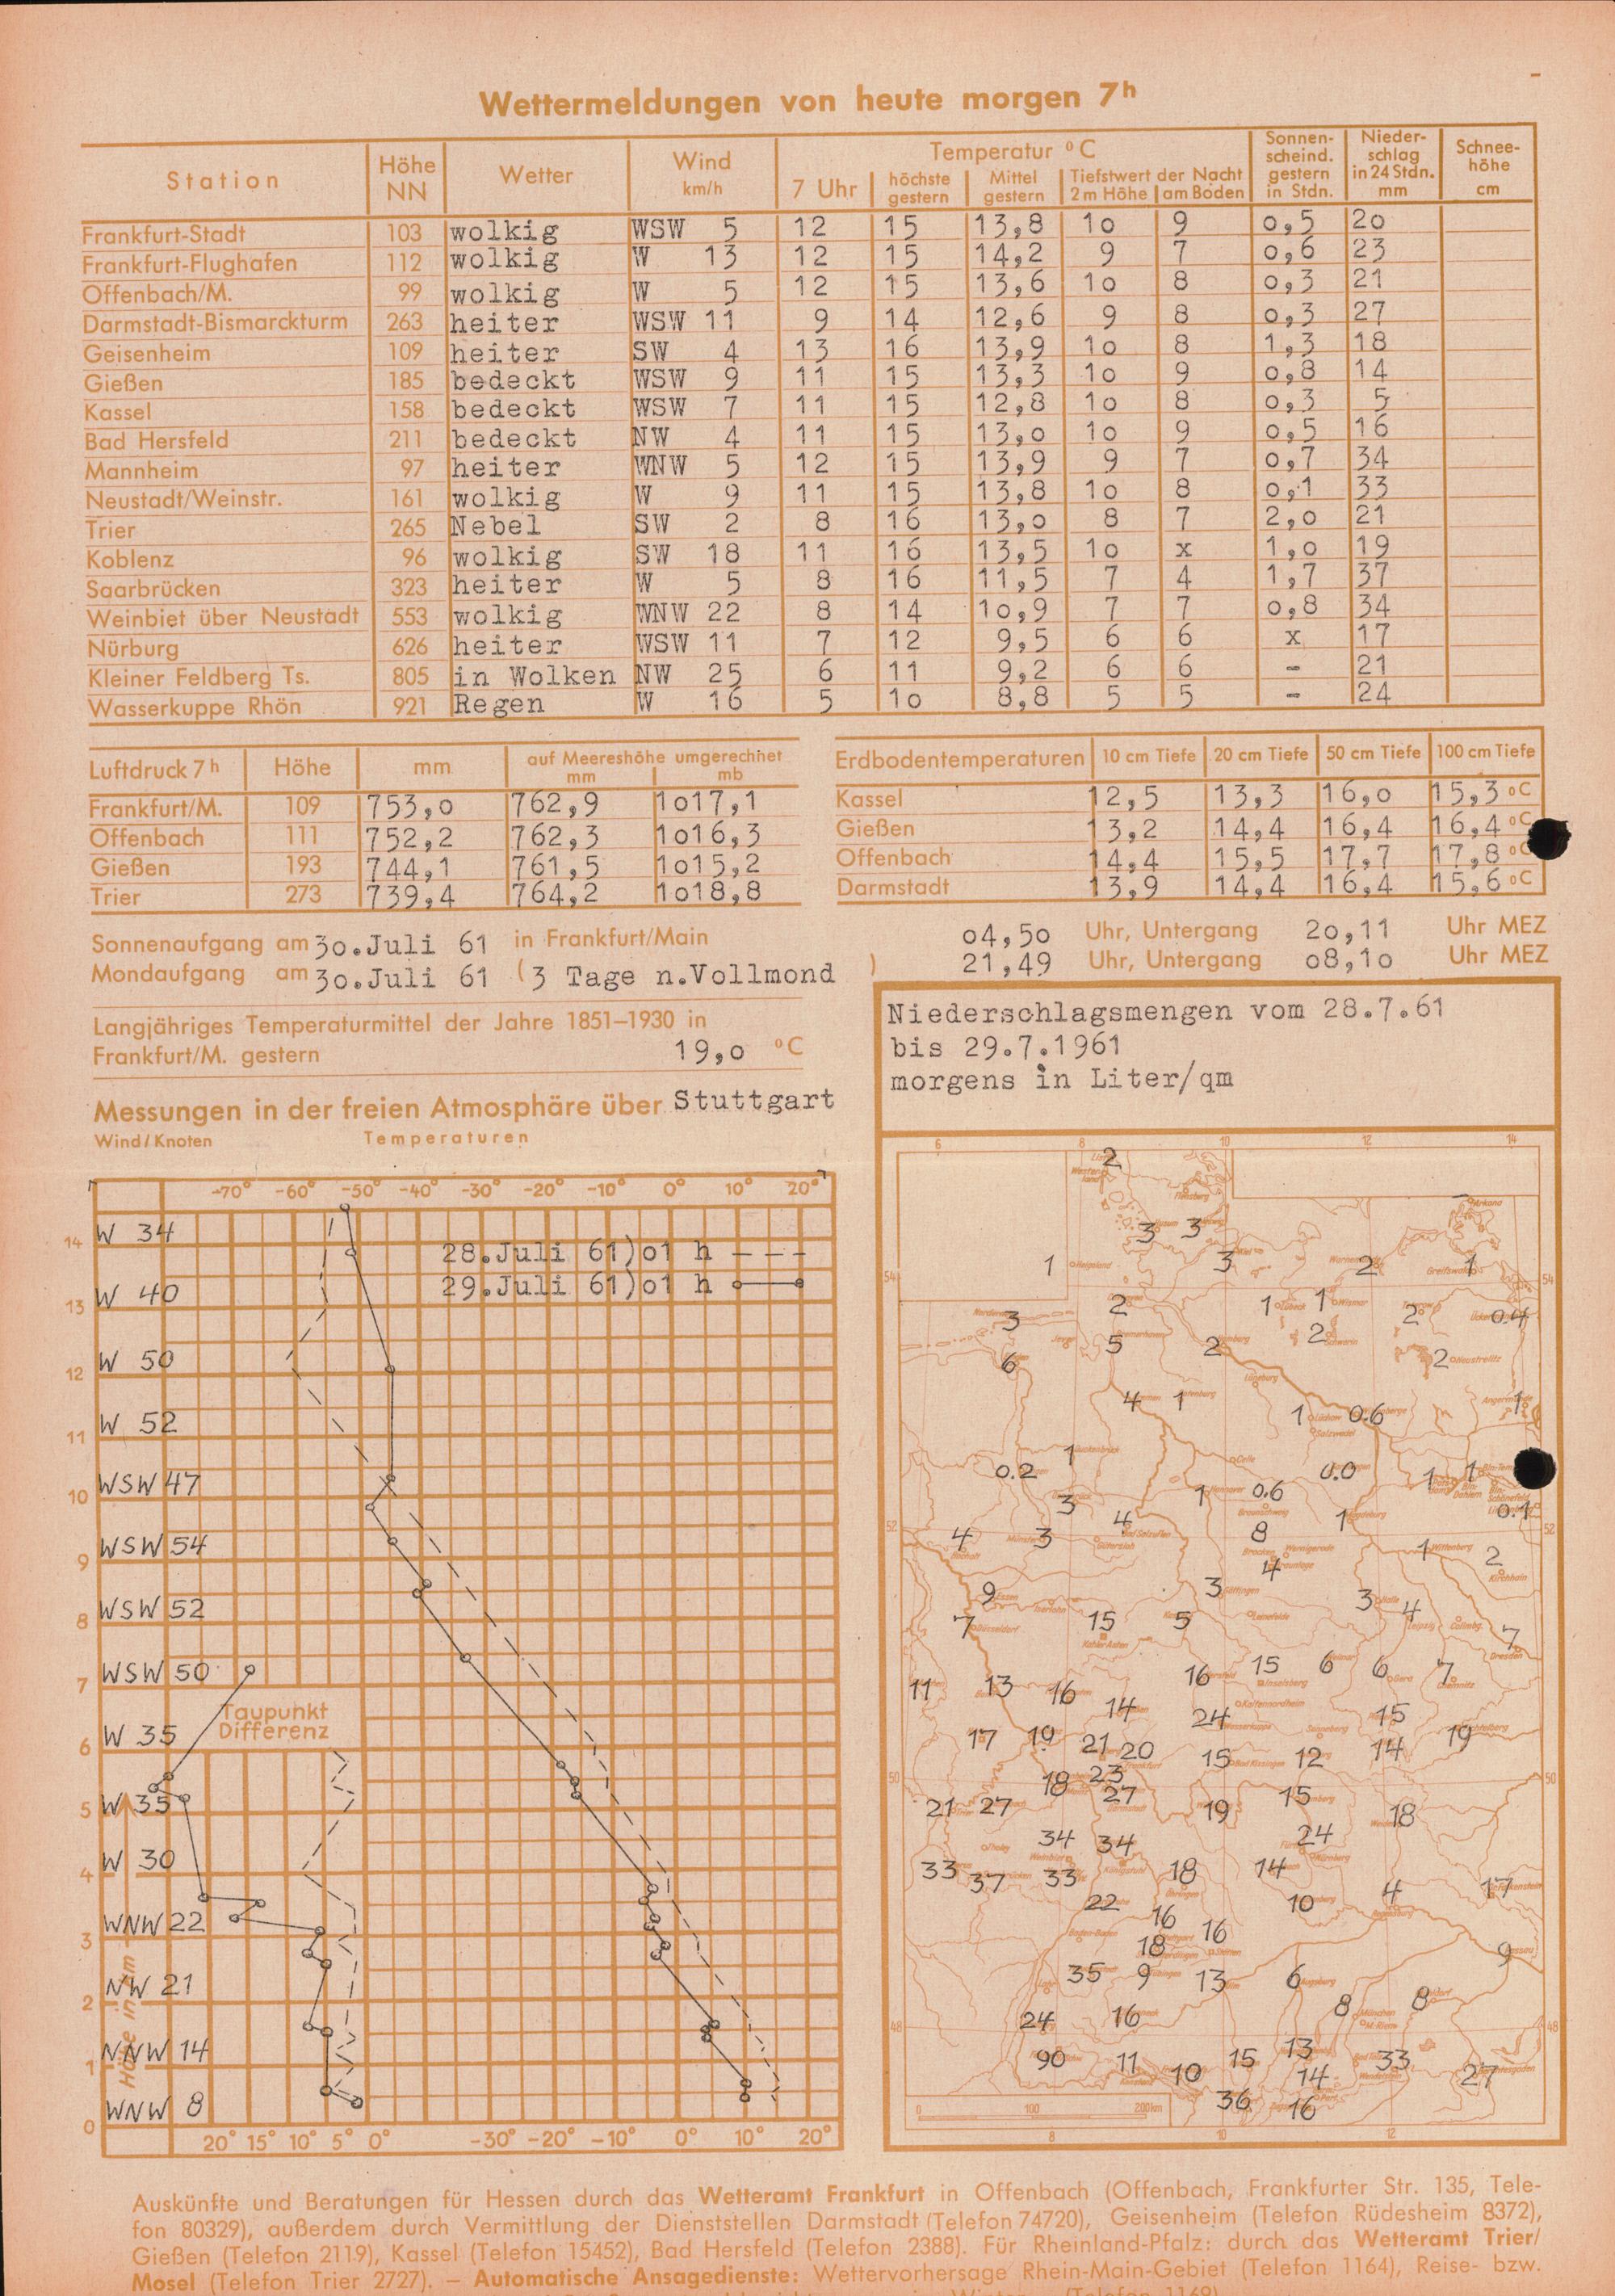 Wettermeldungen von heute morgen 7h
Station Höhe NN Wetter Wind km/h Temperatur °C Sonnenscheind. gestern in Stdn. Niederschlag in 24 Stdn. mm Schneehöhe cm
7 Uhr höchste gestern Mittel gestern Tiefstwert der Nacht 2 m Höhe am Boden
Frankfurt-Stadt 103 wolkig WSW 5 12 15 13,8 10 9 0,5 20
Frankfurt-Flughafen 112 wolkig W 13 12 15 14,2 9 7 0,6 23
Offenbach/M. 99 wolkig W 5 12 15 13,6 10 8 0,3 21
Darmstadt-Bismarckturm 263 heiter WSW 11 9 14 12,6 9 8 0,3 27
Geisenheim 109 heiter SW 4 13 16 13,9 10 8 1,3 18
Gießen 185 bedeckt WSW 9 11 15 13,3 10 9 0,8 14
Kassel 158 bedeckt WSW 7 11 15 12,8 10 8 0,3 5
Bad Hersfeld 211 bedeckt NW 4 11 15 13,0 10 9 0,5 16
Mannheim 97 heiter WNW 5 12 15 13,9 9 7 0,7 34
Neustadt/Weinstr. 161 wolkig W 9 11 15 13,8 10 8 0,1 33
Trier 265 Nebel SW 2 8 16 13,0 8 7 2,0 21
Koblenz 96 wolkig SW 18 11 16 13,5 10 x 1,0 19
Saarbrücken 323 heiter W 5 8 16 11,5 7 4 1,7 37
Weinbiet über Neustadt 553 wolkig WNW 22 8 14 10,9 7 7 0,8 34
Nürburg 626 heiter WSW 11 7 12 9,5 6 6 x 17
Kleiner Feldberg Ts. 805 in Wolken NW 25 6 11 9,2 6 6 - 21
Wasserkuppe Rhön 921 Regen W 16 5 10 8,8 5 5 - 24
Luftdruck 7h Höhe mm auf Meereshöhe umgerechnet mm mb
Frankfurt/M. 109 753,0 762,9 1017,1
Offenbach 111 752,2 762,3 1016,3
Gießen 193 744,1 761,5 1015,2
Trier 273 739,4 764,2 1018,8
Erdbodentemperaturen 10 cm Tiefe 20 cm Tiefe 50 cm Tiefe 100 cm Tiefe
Kassel 12,5 13,3 16,0 15,3 °C
Gießen 13,2 14,4 16,4 16,4 °C
Offenbach 14,4 15,5 17,7 17,8 °C
Darmstadt 13,9 14,4 16,4 15,6 °C
Sonnenaufgang am 30.Juli 61 in Frankfurt/Main 04,50 Uhr, Untergang 20,11 Uhr MEZ
Mondaufgang am 30.Juli 61 (3 Tage n.Vollmond ) 21,49 Uhr, Untergang 08,10 Uhr MEZ
Langjähriges Temperaturmittel der Jahre 1851–1930 in
Frankfurt/M. gestern 19,0 °C
Messungen in der freien Atmosphäre über Stuttgart
Wind/Knoten Temperaturen
-70° -60° -50° -40° -30° -20° -10° 0° 10° 20°
W 34
28.Juli 61)01 h - - -
14
29.Juli 61)01 h
W 40
13
W 50
12
W 52
11
WSW 47
10
WSW 54
9
WSW 52
8
WSW 50
7
Taupunkt
Differenz
W 35
6
W 35
5
W 30
4
WNW 22
3
NW 21
2
NNW 14
1
WNW 8
0
Höhe in km
20° 15° 10° 5° 0° -30° -20° -10° 0° 10° 20°
Niederschlagsmengen vom 28.7.61
bis 29.7.1961
morgens in Liter/qm
6 8 10 12 14
2
Arkona
3 3
1 Helgoland 3 2 1
54 54
3 2 1 1 2 0.4
5 2 2
6 2 Neustrelitz
Lüneburg
4 1 1 0.6 1
Salzwedel
1 Celle
0.2 0.0 1 1
3 1 0.6
4 1 0.1
52 52
4 3 8
1 Wittenberg 2
Brocken 4
Kirchhain
9 3 3 4
7 15 5 7
Kahler Asten
Dresden
11 13 16 14 16 15 6 6 7
Inselsberg
24 15
17 19 21 20 15 12 14 19
50 50
18 23 27 15
21 27 19 18
34 34 24
Nürnberg
33 37 33 18 14
22 10 4 17
16 16
18 9
35 9 13 6
8 8
24 16
48 48
90 11 10 15 13 33
14 27
36 16
0 100 200km
8 10 12
Auskünfte und Beratungen für Hessen durch das Wetteramt Frankfurt in Offenbach (Offenbach, Frankfurter Str. 135, Tele-
fon 80329), außerdem durch Vermittlung der Dienststellen Darmstadt (Telefon 74720), Geisenheim (Telefon Rüdesheim 8372),
Gießen (Telefon 2119), Kassel (Telefon 15452), Bad Hersfeld (Telefon 2388). Für Rheinland-Pfalz: durch das Wetteramt Trier/
Mosel (Telefon Trier 2727). — Automatische Ansagedienste: Wettervorhersage Rhein-Main-Gebiet (Telefon 1164), Reise- bzw.